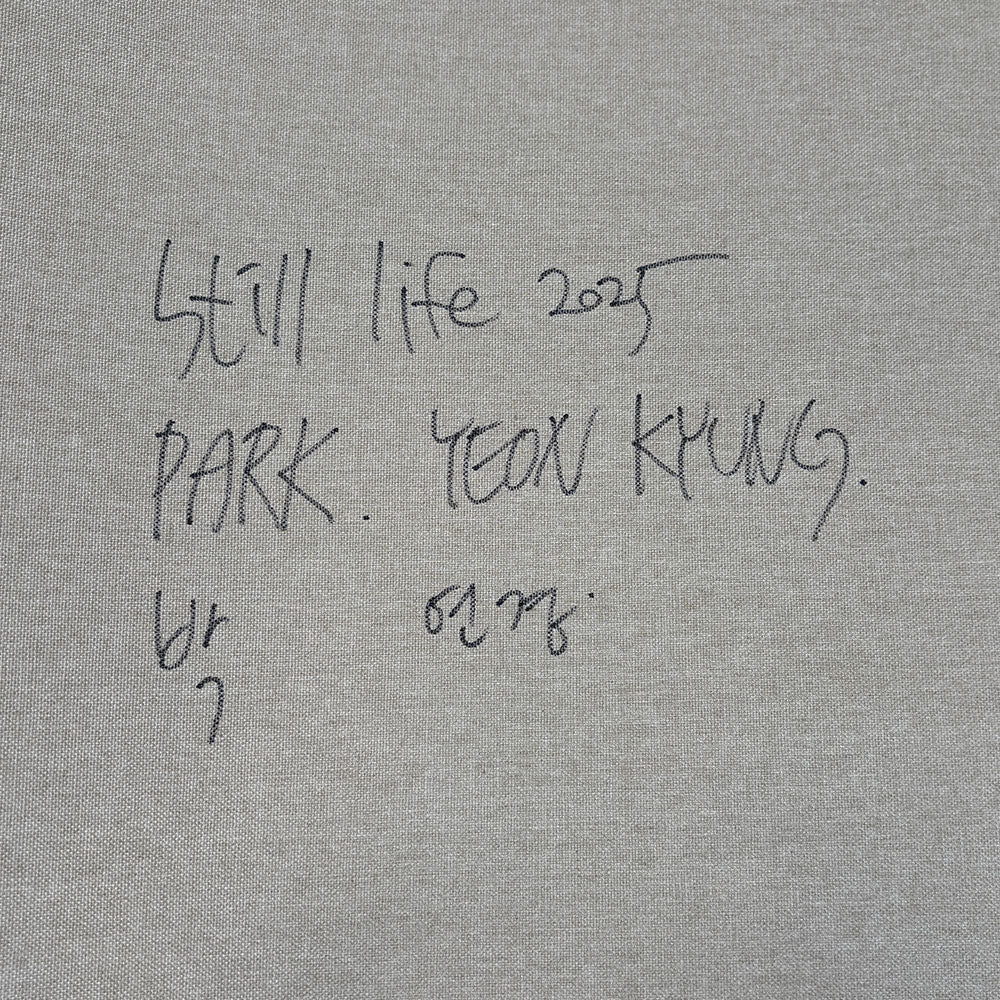 Still life 2025
PARK. YEON KYUNG.
박 연경.